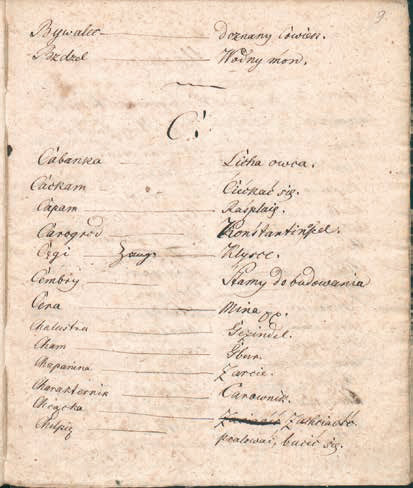 9.
Bywalec Doznany człowiek.
Bzdzel Wodny mon.
C.
Cabanka Licha owca.
Cackam Cićkać się.
Capam Rąplaię.
Carogrod Konstantinpel.
Cęgi Zang. Klysce.
Cembry Stamy do budowania
Cera Mina
Chalustra Gezindel.
Cham Gbur.
Chapanina Zarcie.
Charakternik Carownik.
Chcącka Zachciącić
Chełpię
pralować, bucić się.